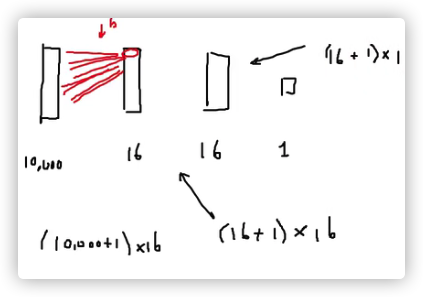 b
(16+1)×1
10,000 16 16 1
(10,000+1)×16 (16+1)×16